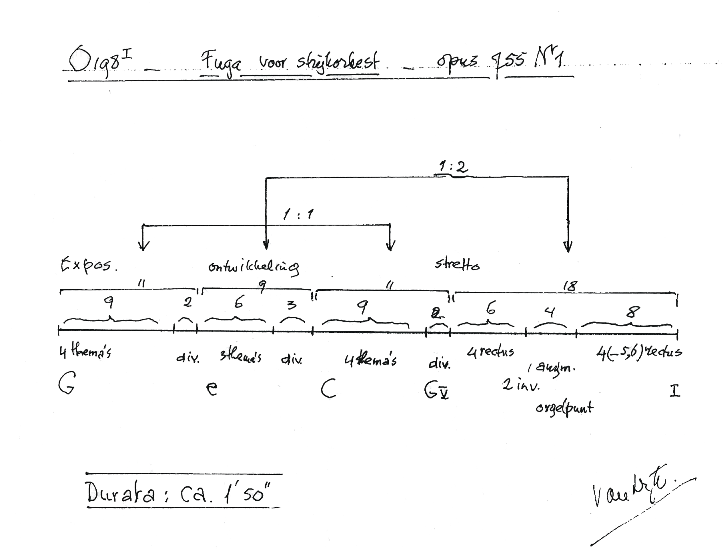 Fuga voor strijkorkest - opus 755 Nr 1
1:2
1:1
Expos. ontwikkeling stretto
11 9 11 18
9 2 6 3 9 2 6 4 8
4 thema's div. 3thema's div. 4 thema's div. 4 rectus 1 augm. 4(-5,6) rectus
G e C G V 2 inv. I
orgelpunt
Durata: ca. 1'50"